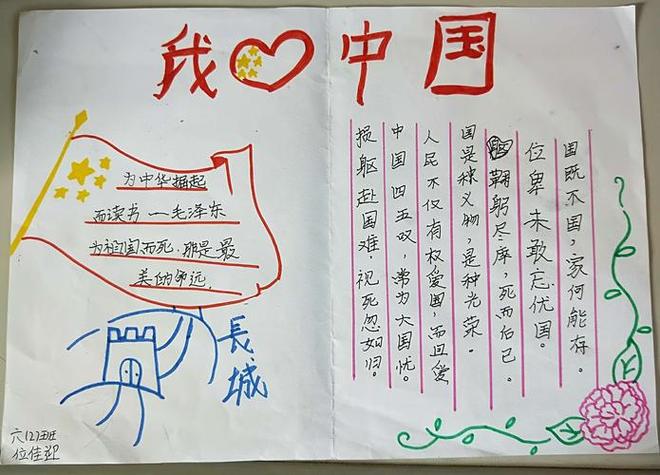 我中国
为中华掘起
而读书一毛泽东
为祖国而死,那是最
美的命远.
長城
六(2)班
位佳迎
国既不国,家何能存。
位卑未敢忘优国。
鞠躬尽瘁,死而后已。
国是种义物,是种光荣。
人民不仅有权爱国,而且爱
中国四五叹,常为大国忧。
损躯赴国难,视死忽如归。